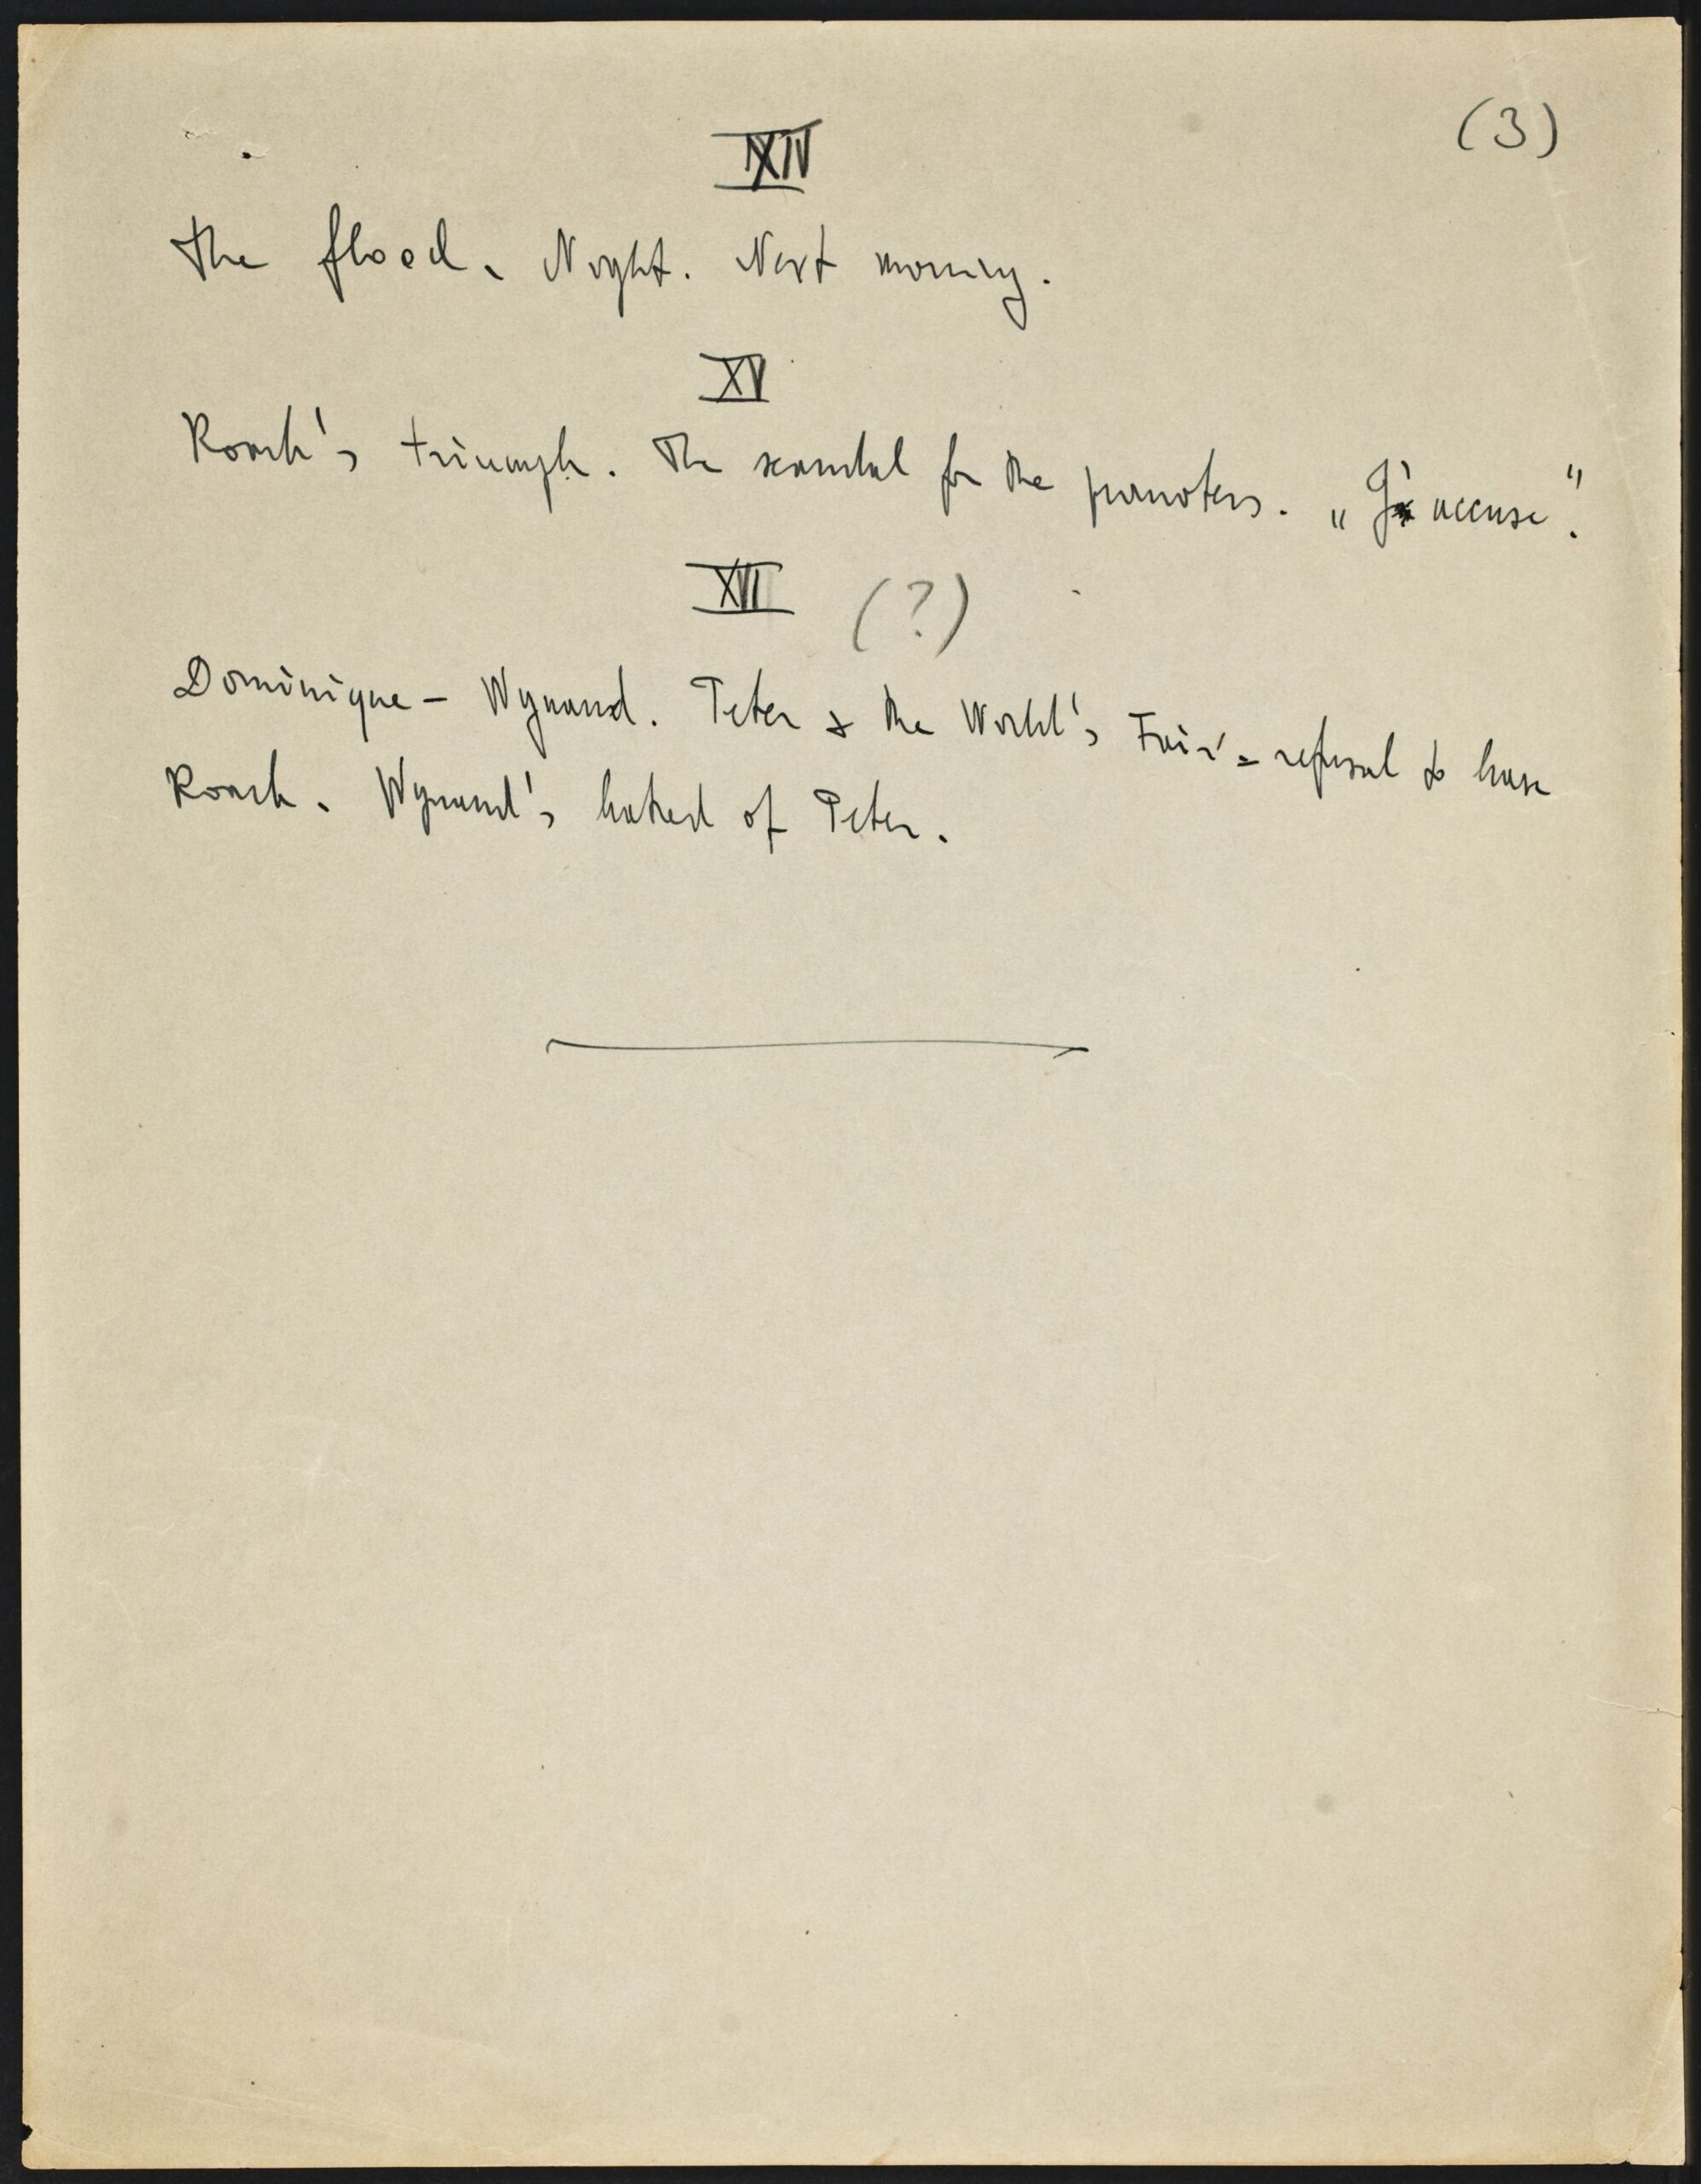 (3)
XIV
The flood. Night. Next morning.
XV
Roark's triumph. The scandal for the promoters. „J'accuse".
XVI (?)
Dominique - Wynand. Peter & the World's Fair = refusal to have
Roark. Wynand's hatred of Peter.